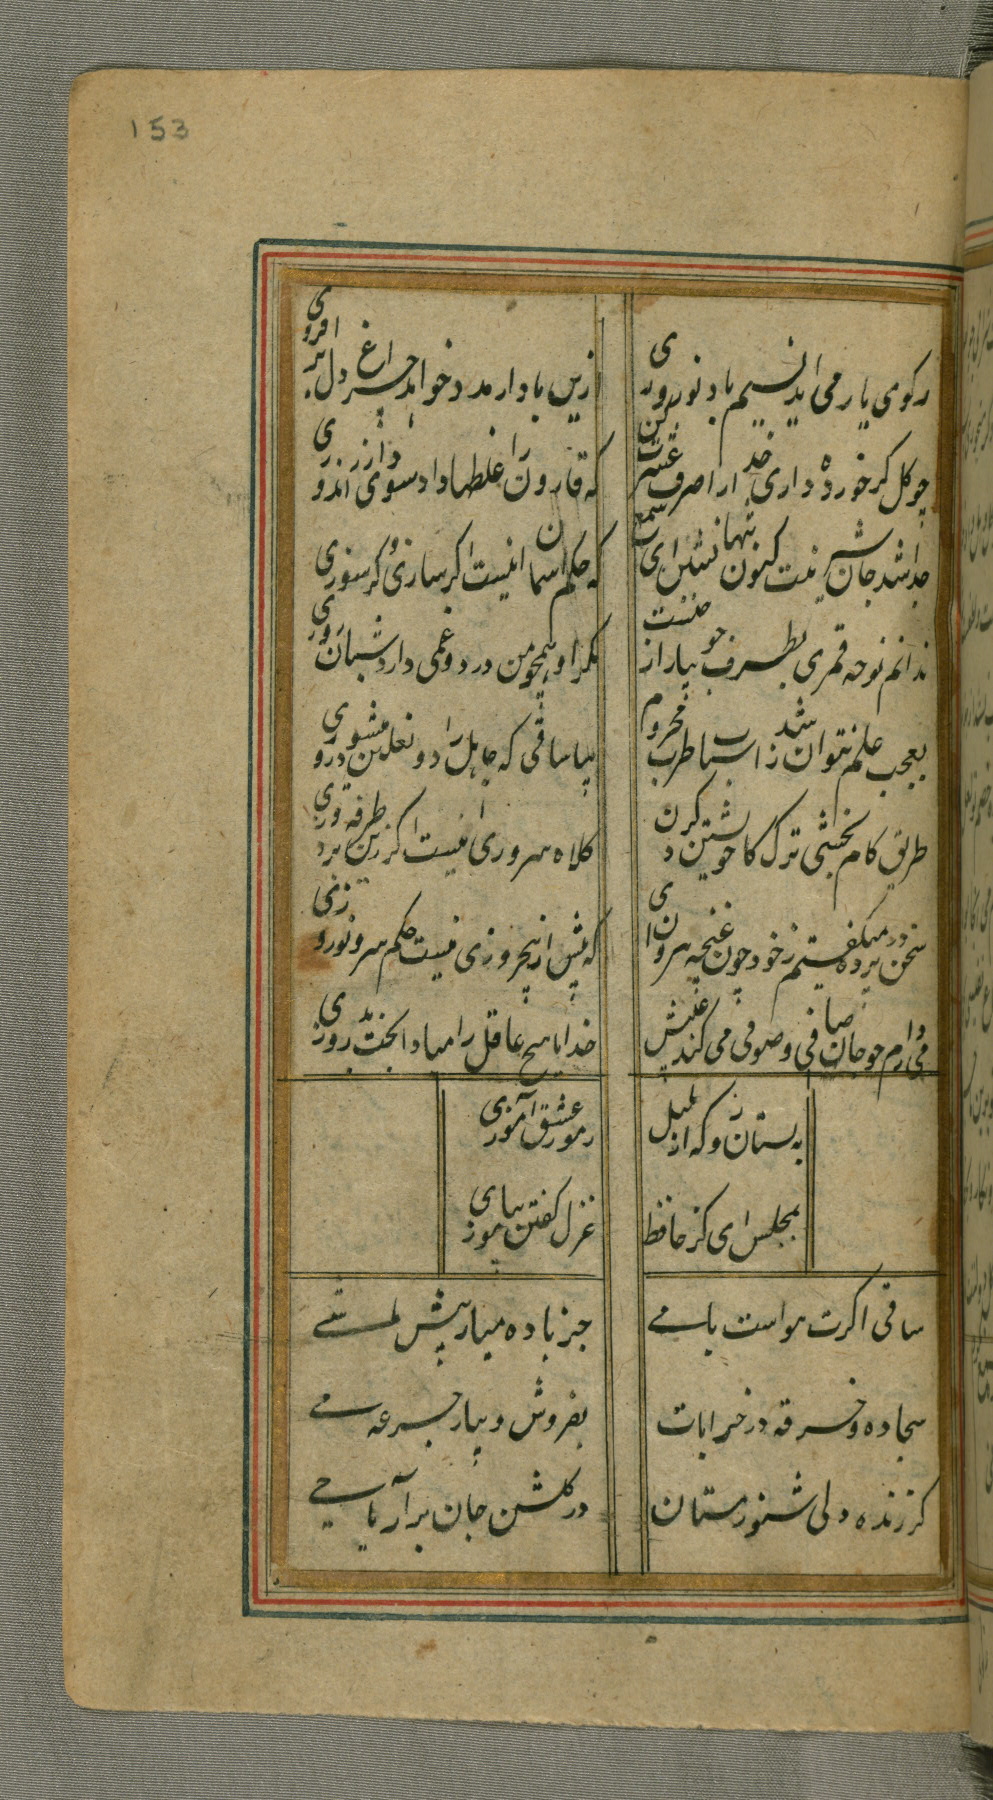 153
ز کوی یار می آید نسیم باد نوروزی
ازین باد ار مدد خواهی چراغ دل برافروزی
چو گل گر خورده داری خدا را صرف عشرت کن
که قارون را غلطها داد سودای زراندوزی
جدا شد جان شیرینت کنون تنها نشین ای شمع
که حکم آسمان اینست اگر سازی و گر سوزی
ندانم نوحه قمری بطرف جویبار از چیست
مگر او همچو من درد و غمی دارد شبان روزی
بعجب علم نتوان شد ز اسباب طرب محروم
بیا ساقی که جاهل را
طریق کام بخشی ترک کام خویشتن کردن
کلاه سروری اینست اگر زین
سخن در پرده میگفتم ز خود چون غنچه بیرون آی
که بیش از پنجروزی نیست حکم میر نوروزی
می دارم چو جان صافی و صوفی می کند عیبش
خدایا هیچ عاقل را مبادا بخت بد روزی
به بستان رو که از بلبل
رموز عشق آموزی
بمجلس آی کز حافظ
غزل گفتن بیاموزی
ساقی اگرت هواست با می
جز باده میار پیش ما شی
سجاده و خرقه در خرابات
بفروش و بیار جرعه می
گر زنده دلی شنو ز مستان
در گلشن جان برآر یا حی